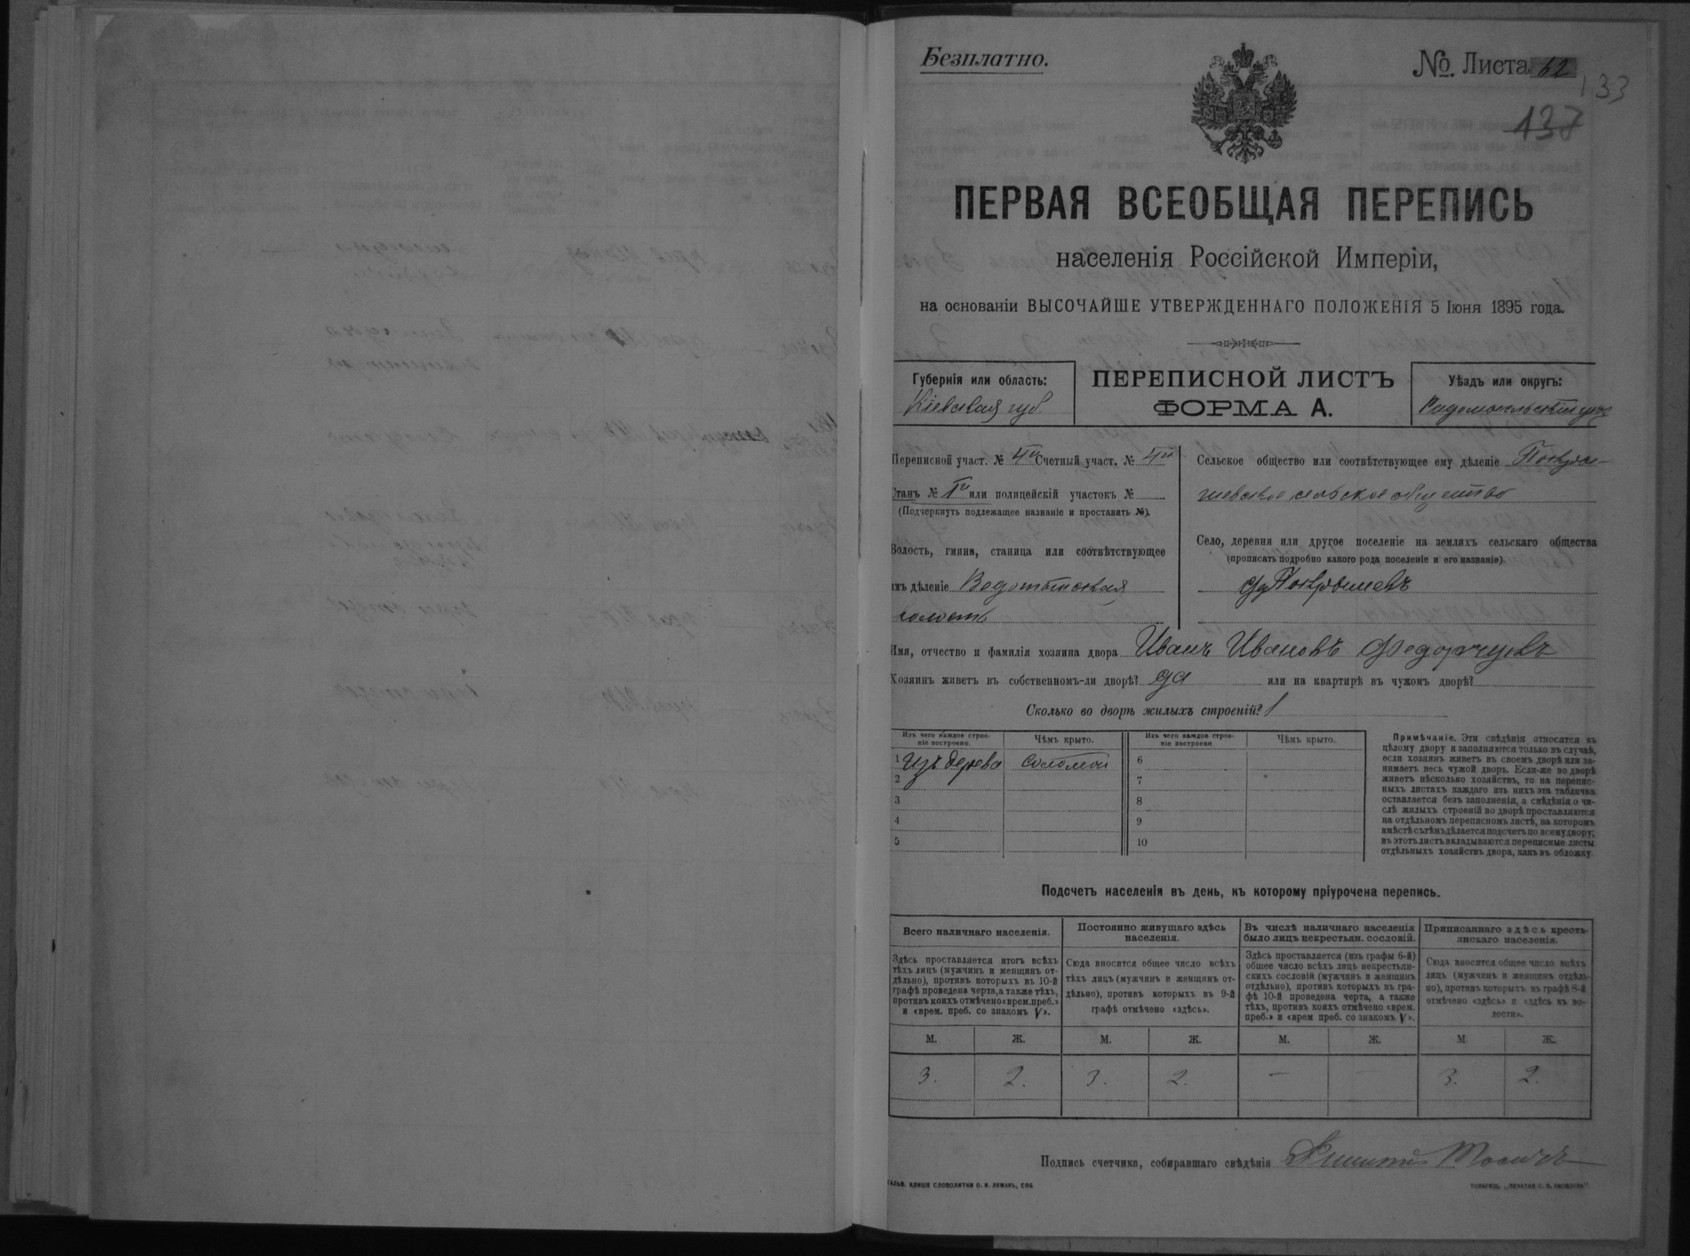 Безплатно.
№. Листа 62
133
137
ПЕРВАЯ ВСЕОБЩАЯ ПЕРЕПИСЬ
населенія Россійской Имперіи,
на основаніи ВЫСОЧАЙШЕ УТВЕРЖДЕННАГО ПОЛОЖЕНІЯ 5 Іюня 1895 года.
Губернія или область:
Кіевская губ
ПЕРЕПИСНОЙ ЛИСТЪ
ФОРМА А.
Уѣздъ или округъ:
Радомысльскій уѣз
Переписной участ. № 4й Счетный участ. № 4й
Станъ № 1й или полицейскій участокъ №
(Подчеркнуть подлежащее названіе и проставить №).
Волость, гмина, станица или соотвѣтствующее
имъ дѣленіе Водотыйская
волость
Сельское общество или соотвѣтствующее ему дѣленіе
сельское общество
Село, деревня или другое поселеніе на земляхъ сельскаго общества
(прописать подробно какого рода поселеніе и его названіе).
Имя, отчество и фамилія хозяина двора Иванъ Ивановъ Федорчукъ
Хозяинъ живетъ въ собственномъ-ли дворѣ? да или на квартирѣ въ чужомъ дворѣ?
Сколько во дворѣ жилыхъ строеній? 1
Изъ чего каждое строе-
ніе построено.
Чѣмъ крыто.
Изъ чего каждое строе-
ніе построено.
Чѣмъ крыто.
1 Изъ дерева соломой 6
2 7
3 8
4 9
5 10
Примѣчаніе. Эти свѣдѣнія относятся къ
цѣлому двору и заполняются только въ случаѣ,
если хозяинъ живетъ въ своемъ дворѣ или за-
нимаетъ весь чужой дворъ. Если-же во дворѣ
живетъ нѣсколько хозяйствъ, то на перепис-
ныхъ листахъ каждаго изъ нихъ эта табличка
оставляется безъ заполненія, а свѣдѣнія о чи-
слѣ жилыхъ строеній во дворѣ проставляются
на отдѣльномъ переписномъ листѣ, на которомъ
вмѣстѣ съ тѣмъ дѣлается подсчетъ по всему двору;
въ этотъ листъ вкладываются переписные листы
отдѣльныхъ хозяйствъ двора, какъ въ обложку.
Подсчетъ населенія въ день, къ которому пріурочена перепись.
Всего наличнаго населенія.
Здѣсь проставляется итогъ всѣхъ
тѣхъ лицъ (мужчинъ и женщинъ от-
дѣльно), противъ которыхъ въ 10-й
графѣ проведена черта, а также тѣхъ,
противъ коихъ отмѣчено «врем. преб.»
и «врем. преб. со знакомъ V».
Постоянно живущаго здѣсь
населенія.
Сюда вносится общее число всѣхъ
тѣхъ лицъ (мужчинъ и женщинъ от-
дѣльно), противъ которыхъ въ 9-й
графѣ отмѣчено «здѣсь».
Въ числѣ наличнаго населенія
было лицъ некрестьян. сословій.
Здѣсь проставляется (изъ графы 6-й)
общее число всѣхъ лицъ некрестьян-
скихъ сословій (мужчинъ и женщинъ
отдѣльно), противъ которыхъ въ гра-
фѣ 10-й проведена черта, а также
тѣхъ, противъ коихъ отмѣчено «врем.
преб.» и «врем преб. со знакомъ V».
Приписаннаго здѣсь кресть-
янскаго населенія.
Сюда вносится общее число всѣхъ
лицъ (мужчинъ и женщинъ отдѣль-
но), противъ которыхъ въ графѣ 8-й
отмѣчено «здѣсь» и «здѣсь въ во-
лости».
М. Ж. М. Ж. М. Ж. М Ж.
3. 2. 3. 2. — 3. 2.
Подпись счетчика, собиравшаго свѣдѣнія